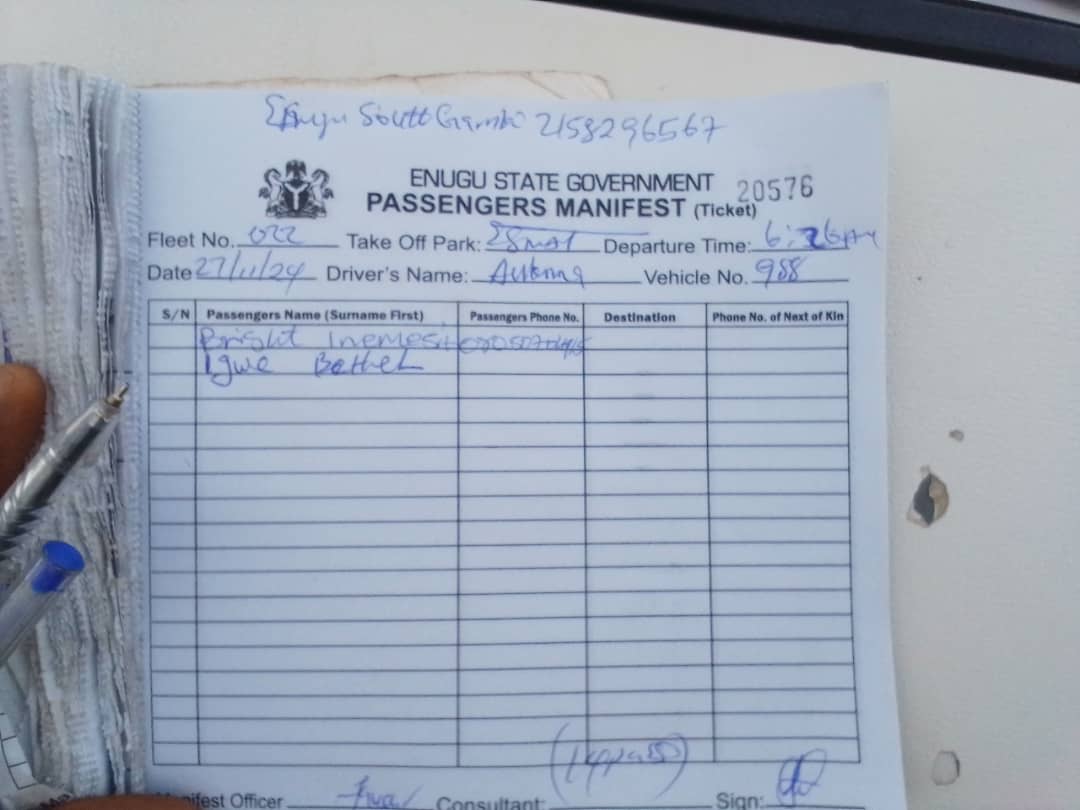 South 2158296567
ENUGU STATE GOVERNMENT 20576
PASSENGERS MANIFEST (Ticket)
Fleet No. 022 Take Off Park: Departure Time:
Date 27/11/24 Driver's Name: Vehicle No. 988
S/N Passengers Name (Surname First) Passengers Phone No. Destination Phone No. of Next of Kin
Bright Inemesit
Igwe Bethel
Manifest Officer Consultant: Sign: